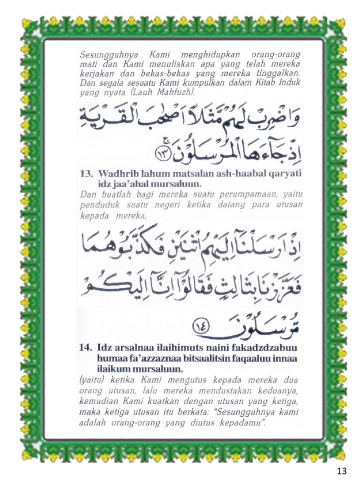 Sesungguhnya Kami menghidupkan orang-orang
mati dan Kami menuliskan apa yang telah mereka
kerjakan dan bekas-bekas yang mereka tinggalkan.
Dan segala sesuatu Kami kumpulkan dalam Kitab Induk
yang nyata (Lauh Mahfuzh).
وَاضْرِبْ لَهُمْ مَثَلًا أَصْحٰبَ الْقَرْيَةِ
إِذْ جَآءَهَا الْمُرْسَلُوْنَ ﴿١٣﴾
13. Wadhrib lahum matsalan ash-haabal qaryati
idz jaa'ahal mursaluun.
Dan buatlah bagi mereka suatu perumpamaan, yaitu
penduduk suatu negeri ketika datang para utusan
kepada mereka,
إِذْ أَرْسَلْنَآ إِلَيْهِمُ اثْنَيْنِ فَكَذَّبُوْهُمَا
فَعَزَّزْنَا بِثَالِثٍ فَقَالُوْٓا إِنَّآ إِلَيْكُمْ
مُّرْسَلُوْنَ ﴿١٤﴾
14. Idz arsalnaa ilaihimuts naini fakadzdzabuu
humaa fa'azzaznaa bitsaalitsin faqaaluu innaa
ilaikum mursaluun.
(yaitu) ketika Kami mengutus kepada mereka dua
orang utusan, lalu mereka mendustakan keduanya,
kemudian Kami kuatkan dengan utusan yang ketiga,
maka ketiga utusan itu berkata: "Sesungguhnya kami
adalah orang-orang yang diutus kepadamu".
13